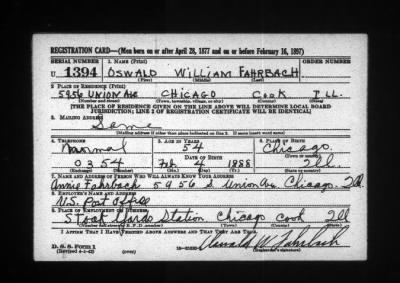 REGISTRATION CARD—(Men born on or after April 28, 1877 and on or before February 16, 1897)
SERIAL NUMBER 1. NAME (Print) ORDER NUMBER
U 1394 OSWALD WILLIAM FAHRBACH
(First) (Middle) (Last)
2. PLACE OF RESIDENCE (Print)
5956 UNION AVE CHICAGO COOK ILL.
(Number and street) (Town, township, village, or city) (County) (State)
[THE PLACE OF RESIDENCE GIVEN ON THE LINE ABOVE WILL DETERMINE LOCAL BOARD
JURISDICTION; LINE 2 OF REGISTRATION CERTIFICATE WILL BE IDENTICAL]
3. MAILING ADDRESS
Same
[Mailing address if other than place indicated on line 2. If same insert word same]
4. TELEPHONE 5. AGE IN YEARS 6. PLACE OF BIRTH
Normal 54 Chicago
DATE OF BIRTH (Town or county)
0354 Feb 4 1888 Ill.
(Mo.) (Day) (Yr.) (State or country)
7. NAME AND ADDRESS OF PERSON WHO WILL ALWAYS KNOW YOUR ADDRESS
Annie Fahrbach 5956 S. Union Ave. Chicago. Ill
8. EMPLOYER'S NAME AND ADDRESS
U.S. Post Office
9. PLACE OF EMPLOYMENT OR BUSINESS
Stock Yards Station Chicago Cook Ill
(Number and street or R. F. D. number) (Town) (County) (State)
I AFFIRM THAT I HAVE VERIFIED ABOVE ANSWERS AND THAT THEY ARE TRUE.
D. S. S. Form 1
(Revised 4-1-42) (over) Oswald W. Fahrbach
(Registrant's signature)